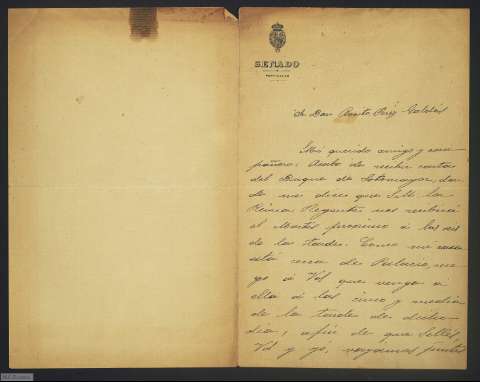 SENADO
PARTICULAR
Sr. Don Benito Pérez Galdós
Mi querido amigo y com
pañero: Acabo de recibir carta
del Duque de Sotomayor, don
de me dice que S.M. la
Reina Regente nos recibirá
el Martes proximo á las seis
de la tarde. Como mi casa
está cerca de Palacio, rue
go á Vd que venga á
ella á las cinco y media
de la tarde de dicho
dia, á fin de que
Vd y yó, vayamos juntos